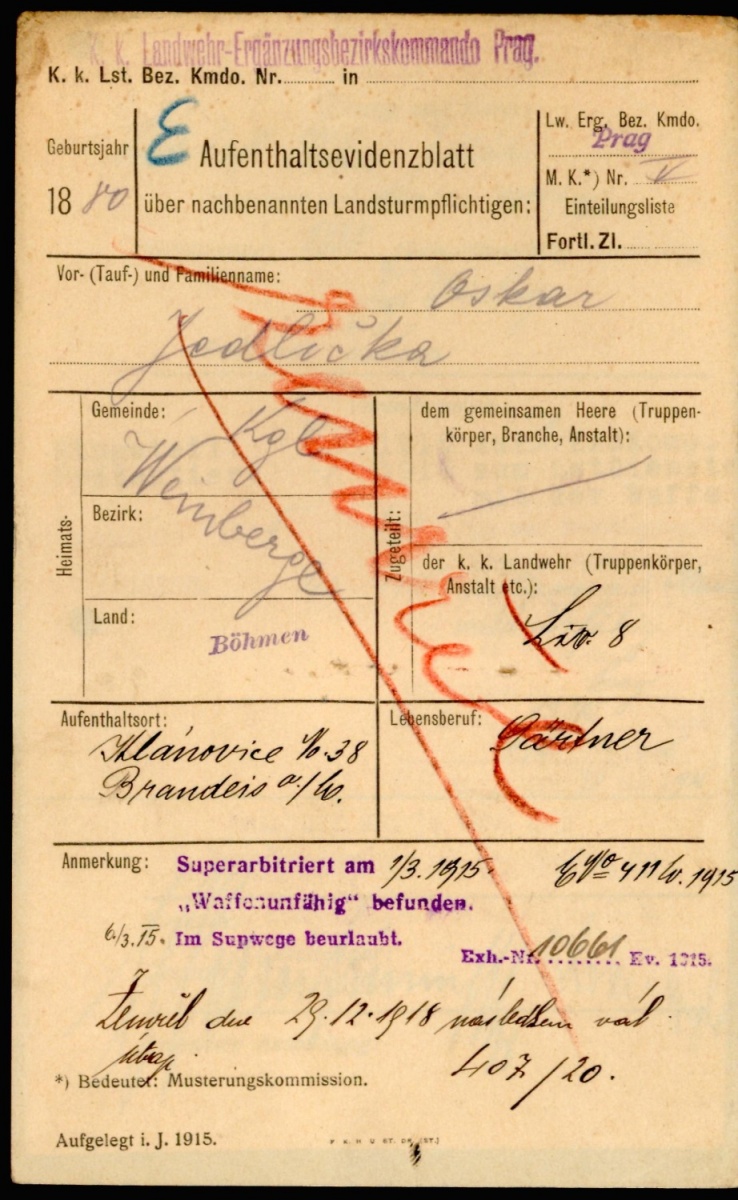 K. k. Landwehr-Ergänzungsbezirkskommando Prag.
K. k. Lst. Bez. Kmdo. Nr. in
Geburtsjahr
1880
E Aufenthaltsevidenzblatt
über nachbenannten Landsturmpflichtigen:
Lw. Erg. Bez. Kmdo.
Prag
M. K.*) Nr. V
Einteilungsliste
Fortl. Zl.
Vor- (Tauf-) und Familienname:
Oskar
Jedlička
Heimats-
Gemeinde:
Kgl
Weinberge
Bezirk:
Land:
Böhmen
Zugeteilt:
dem gemeinsamen Heere (Truppen-
körper, Branche, Anstalt):
der k. k. Landwehr (Truppenkörper,
Anstalt etc.):
8
Aufenthaltsort:
Klánovice No. 38
Brandeis a/
Lebensberuf:
Gärtner
Anmerkung:
Superarbitriert am 1/3. 1915.
„Waffenunfähig" befunden.
6./3. 15. Im Supwege beurlaubt.
1915
Exh.-Nr. 10661 Ev. 1915.
Zemřel dne 29.12.1918 následkem vál.
407/20.
*) Bedeutet: Musterungskommission.
Aufgelegt i. J. 1915.